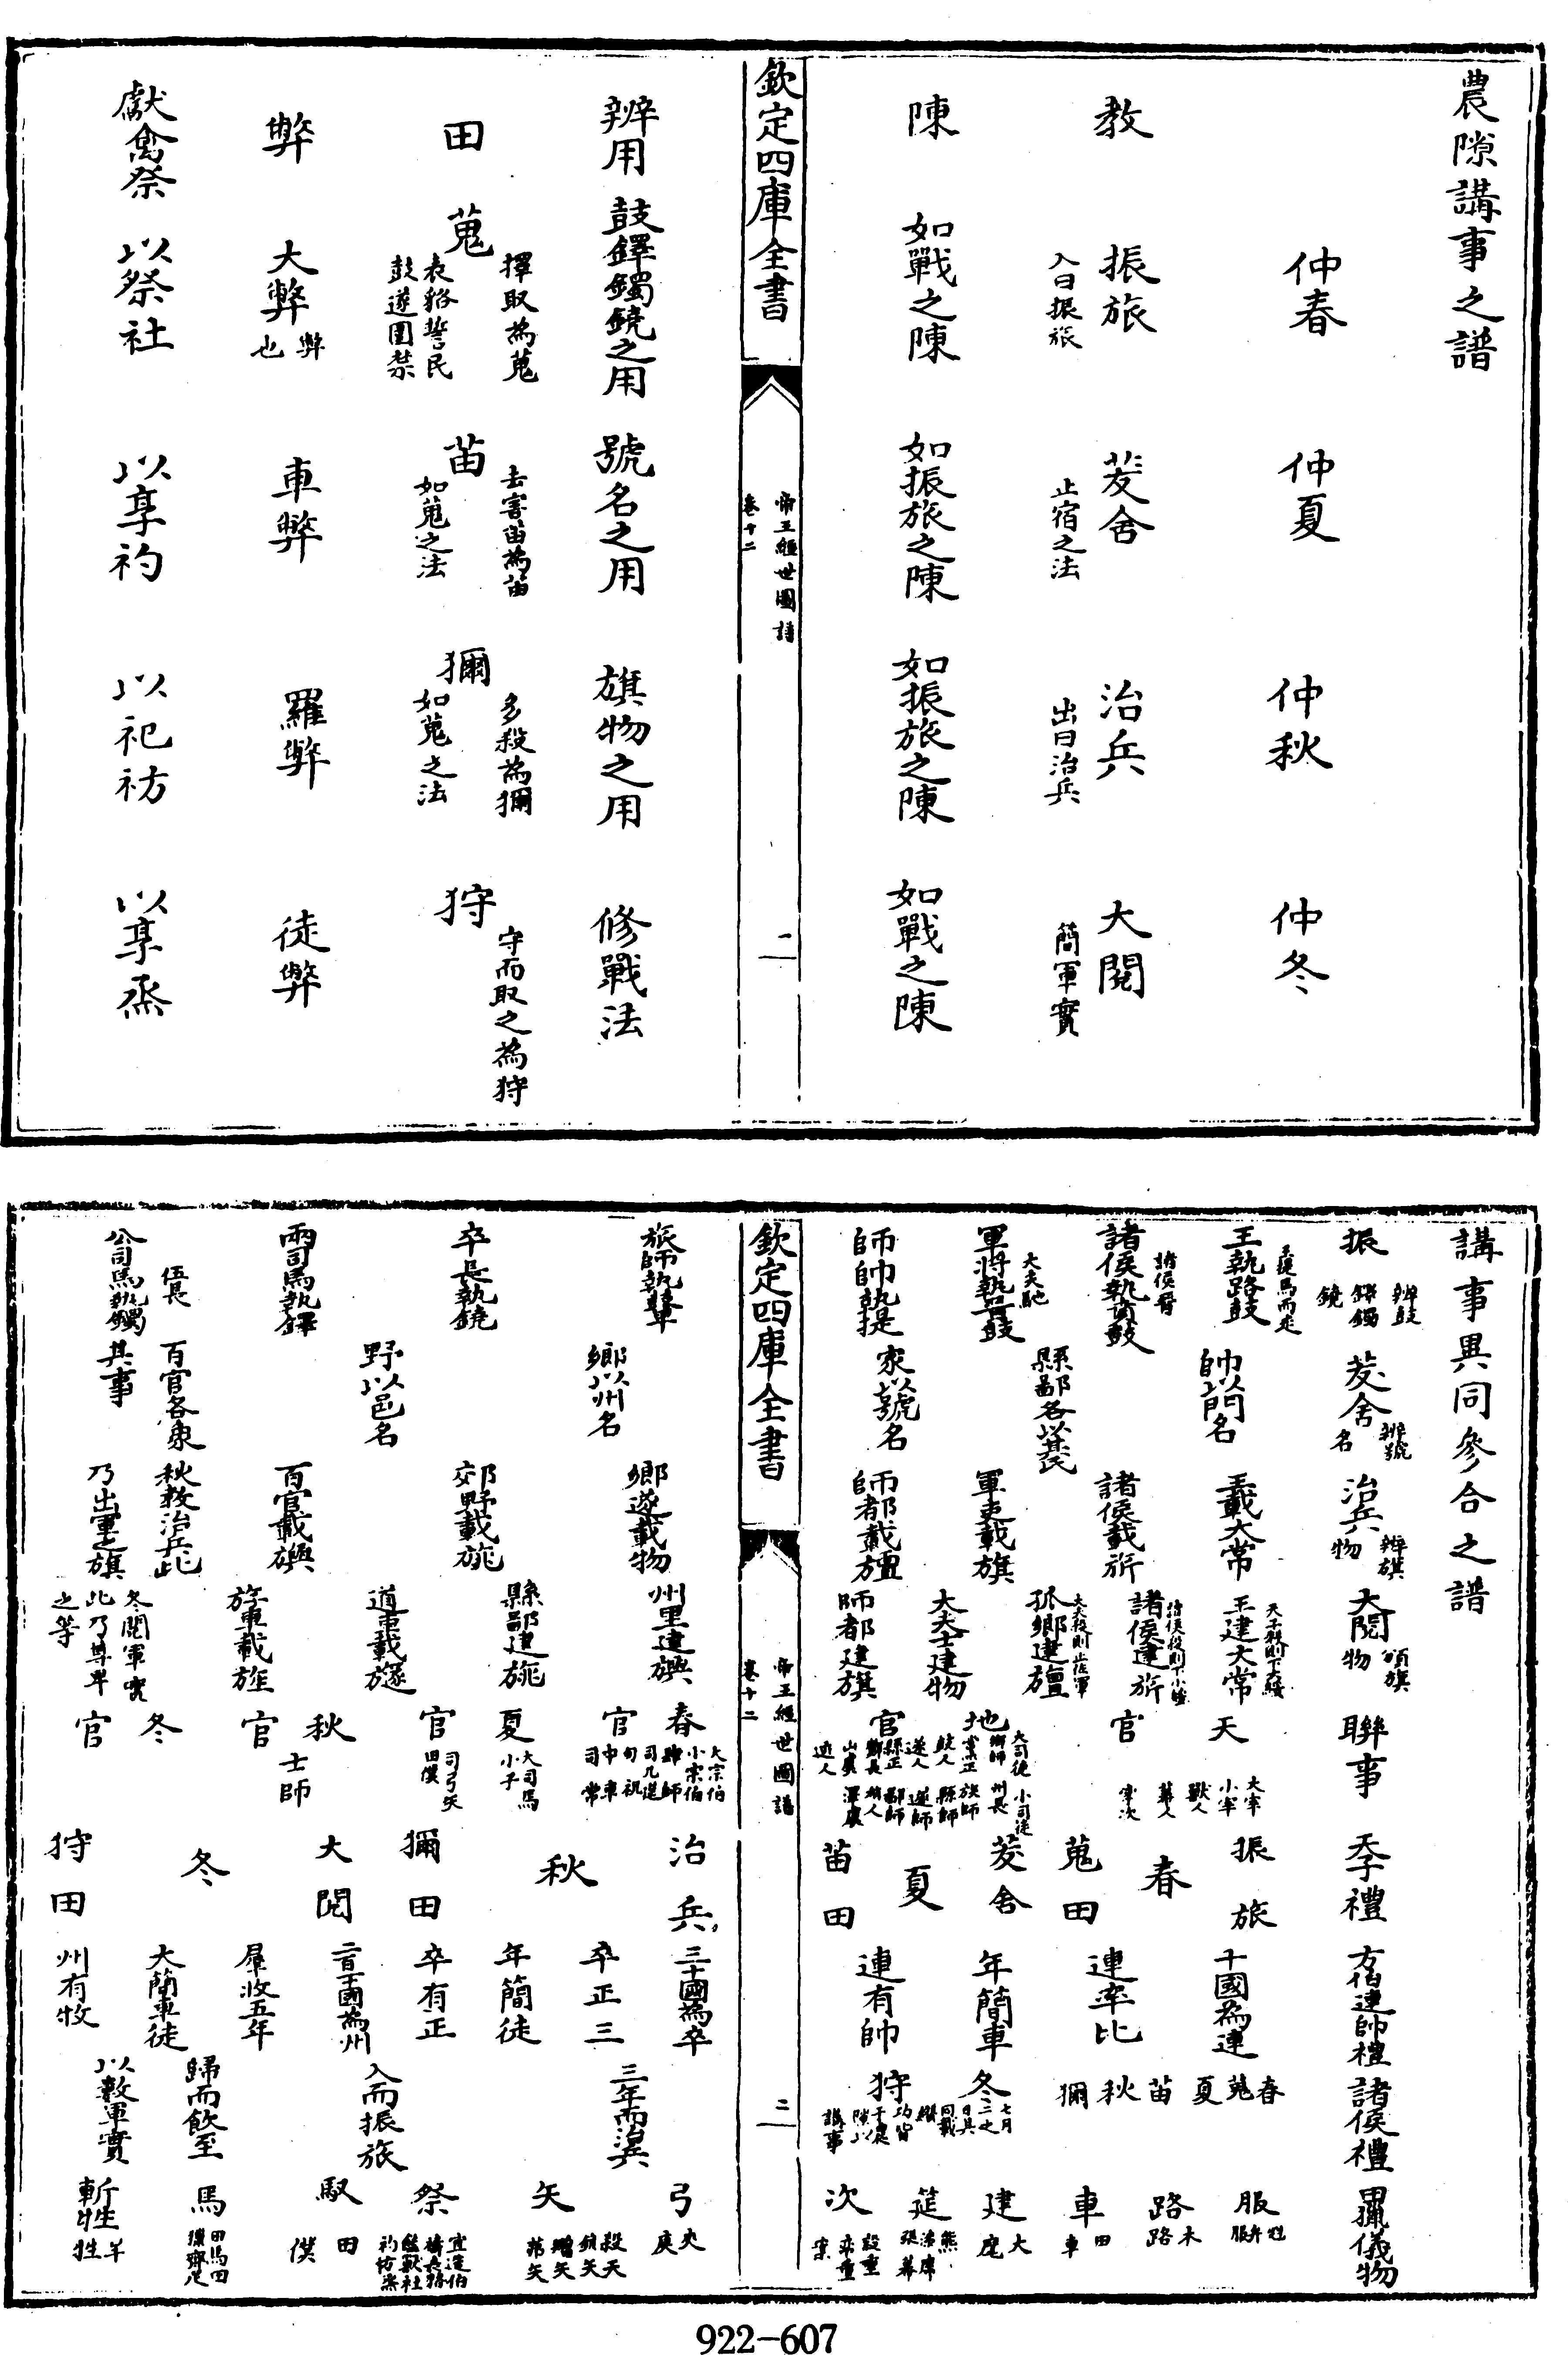 農隙講事之譜
仲春　仲夏　仲秋　仲冬
教　振旅　茇舍　治兵　大閱
入曰振旅　止宿之法　出曰治兵　簡軍實
陳　如戰之陳　如振旅之陳　如振旅之陳　如戰之陳
欽定四庫全書
帝王經世圖譜
卷十二
一
辨用　鼓鐸鐲鐃之用　號名之用　旗物之用　修戰法
擇取為蒐　去害苗為苗　多殺為獮　守而取之為狩
田　蒐　苗　獮　狩
表貉誓民　如蒐之法　如蒐之法
鼓遂圍禁
弊　大弊　車弊　羅弊　徒弊
弊
也
獻禽祭　以祭社　以享礿　以祀祊　以享烝
講事異同參合之譜
振　辨鼓鐸鐲鐃　茇舍　辨號名　治兵　辨旗物　大閱　頒旗物　聯事　天子禮　方伯連帥禮　諸侯禮　田獵儀物
王執路鼓　王提馬而走　帥以門名　王載大常　王建大常　天子殺則下大綏
諸侯執賁鼓　諸侯晉　諸侯載旂　諸侯建旂　諸侯殺則下小綏
天官　大宰　小宰　獸人　掌次
振旅　春　蒐田
十國為連　連率比
春蒐　夏苗　秋獮
服　冠弁服　路　木路　車　田車
軍將執晉鼓　大夫馳　縣鄙各以其民　軍吏載旗　孤鄉建旜　大夫士建物
師帥執提　家以號名　師都載旜　師都建旗
地官　大司徒　小司徒　鄉師　州長　黨正　族師　鼓人　縣師　遂人　遂師　縣正　鄙師　山虞　澤虞　迹人
茇舍　夏　苗田
年簡車　連有帥
冬狩
建　大麾　筵　熊席　次
欽定四庫全書
帝王經世圖譜
卷十二
二
旅帥執鼙　鄉以州名　鄉遂載物　州里建旟
春官　大宗伯　小宗伯　肆師　司几筵　甸祝　巾車　司常
治兵　秋　獮田
三十國為卒　卒正三
三年而治兵
弓　夾庾　矢
卒長執鐃　野以邑名　郊野載旐　縣鄙建旐
夏官　大司馬　小子　司弓矢　田僕
年簡徒　卒有正
入而振旅
祭　馭　田僕
兩司馬執鐸　百官載旟　道車載旞
秋官　士師
大閱　冬　狩田
二百一十國為州
公司馬執鐲　伍長　百官各象其事　秋教治兵此乃出軍之旗　斿車載旌　冬閱軍實此乃尊卑之等
冬官
羣牧五年　大簡車徒　州有牧
歸而飲至　以數軍實
馬　斬牲　羊牲
922-607